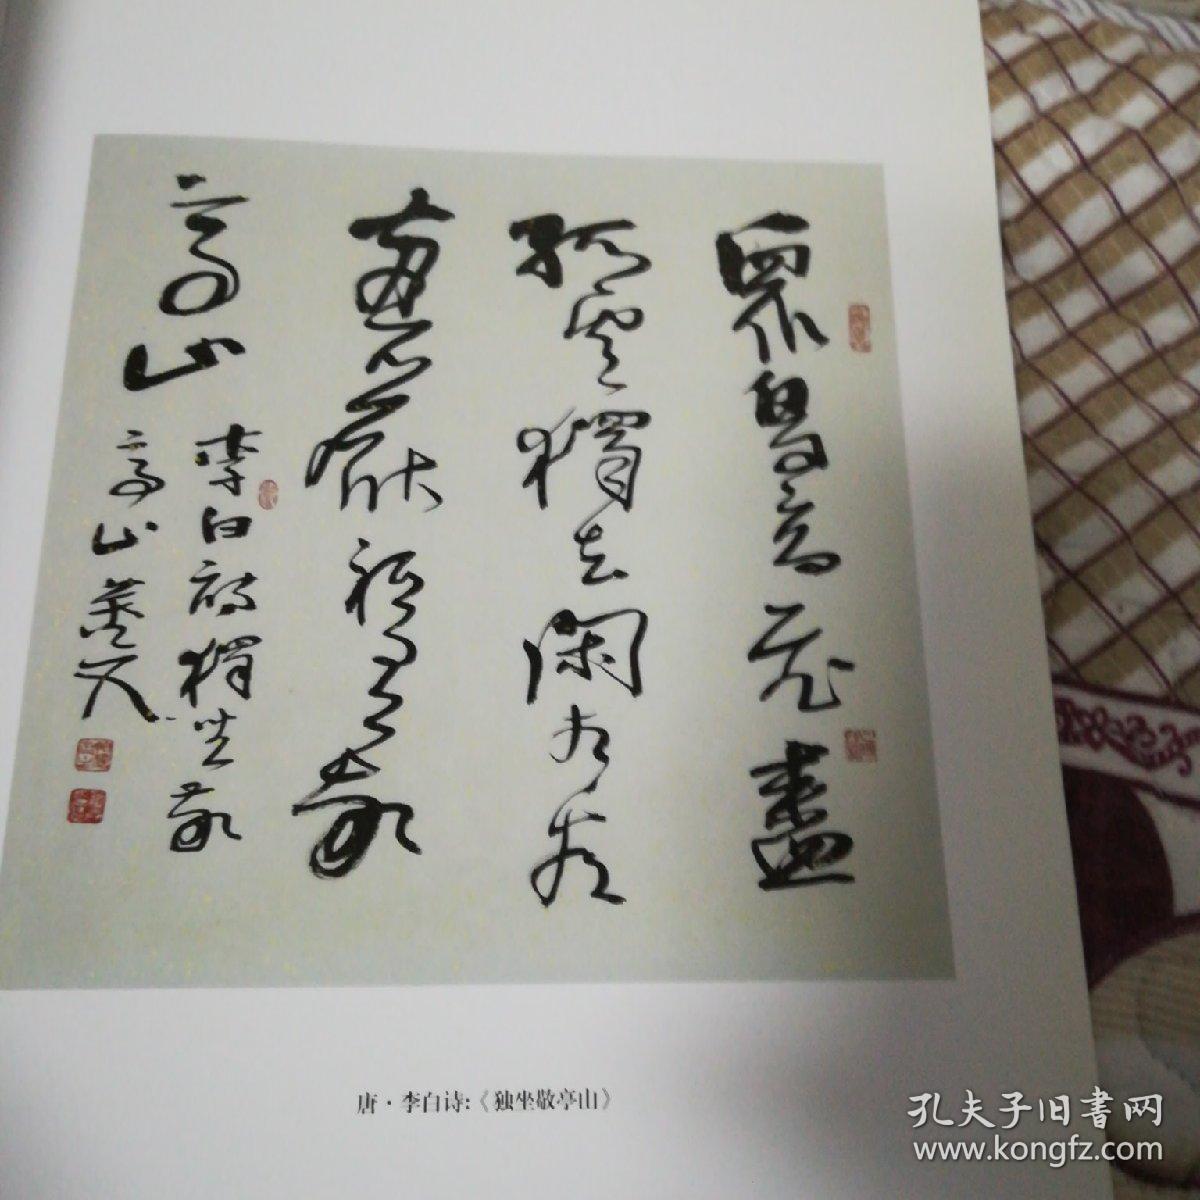 眾鳥高飛盡
孤雲獨去閑相看
兩不厭祗有敬
亭山
李白詩獨坐敬
亭山
唐·李白诗:《独坐敬亭山》
孔夫子旧书网
www.kongfz.com